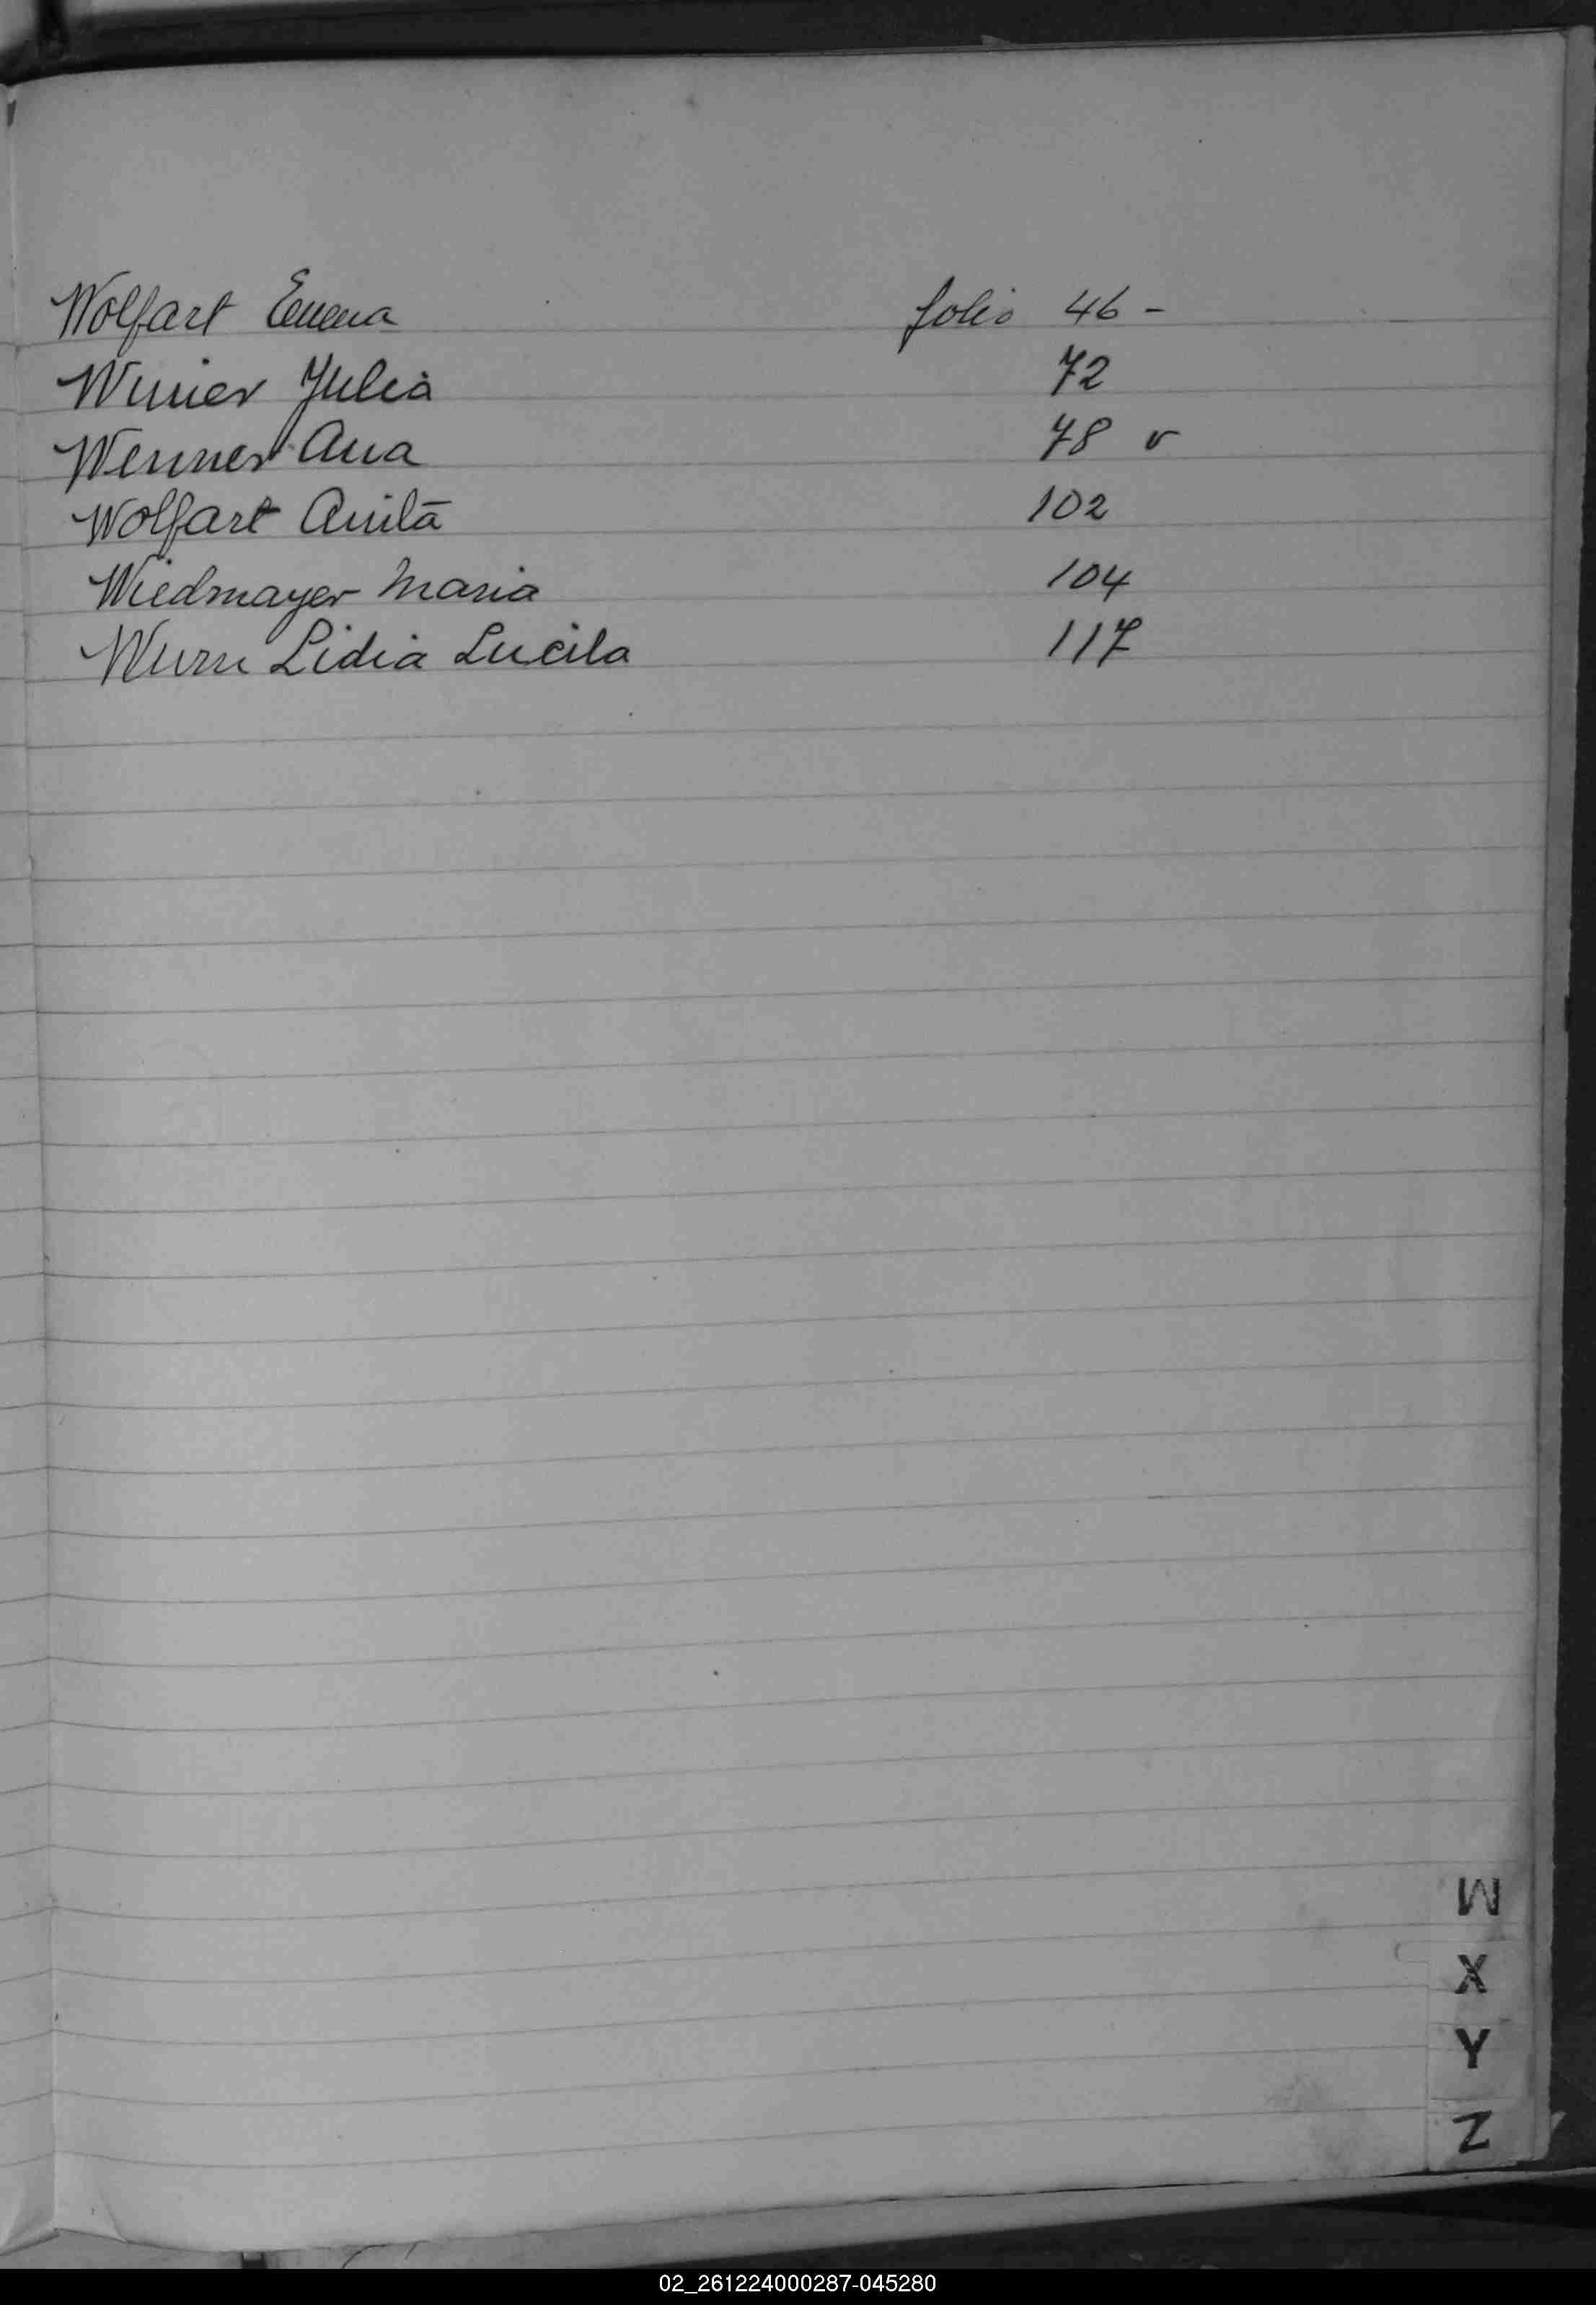 Wolfart Emma folio 46 -
Winier Julia 72
Wenner Ana 78 v
Wolfart Anita 102
Wiedmayer Maria 104
Wurm Lidia Lucila 117
W
X
Y
Z
02_261224000287-045280